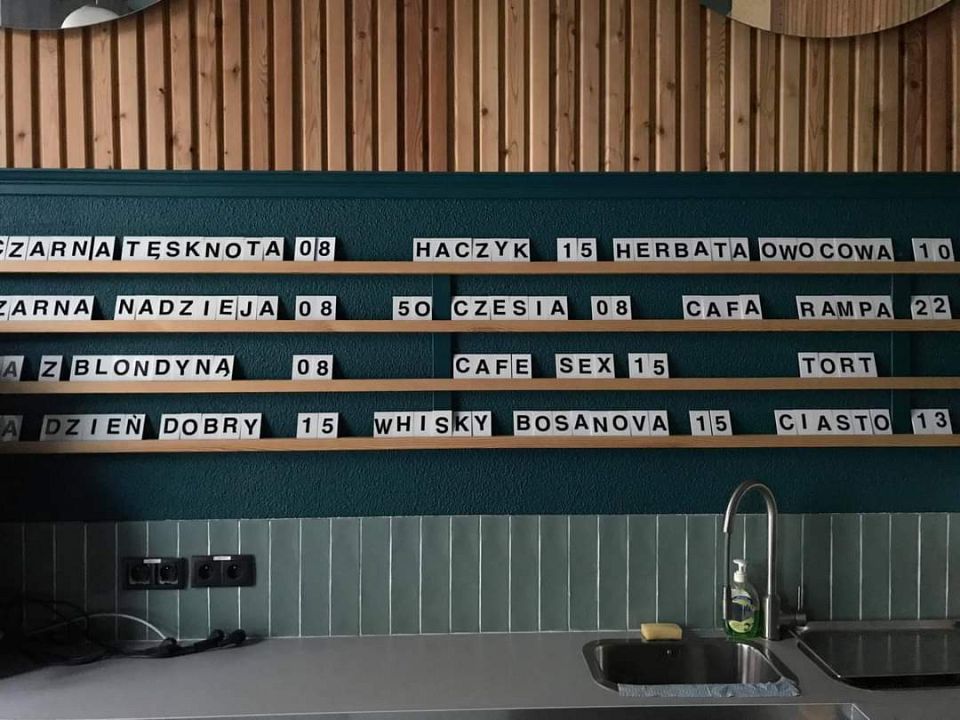 CZARNA TĘSKNOTA 08 HACZYK 15 HERBATA OWOCOWA 10
ZARNA NADZIEJA 08 50 CZESIA 08 CAFA RAMPA 22
A Z BLONDYNĄ 08 CAFE SEX 15 TORT
A DZIEŃ DOBRY 15 WHISKY BOSANOVA 15 CIASTO 13